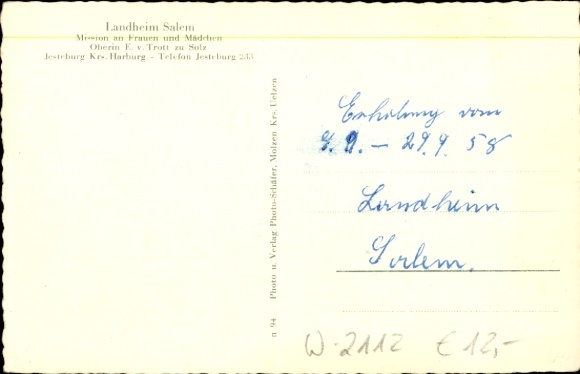 Landheim Salem
Mission an Frauen und Mädchen
Oberin E. v. Trott zu Solz
Jesteburg Krs. Harburg - Telefon Jesteburg 233
n 94 Photo u. Verlag Photo-Schäfer, Molzen Krs. Uelzen
Erholung vom
9. - 29.9. 58
Landheim
Salem.
W-2112 € 12,-